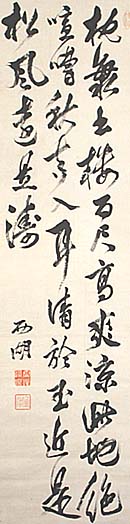 樓百尺高爽涼此地絶
喧嘈秋声入耳清於玉近是
松風遠是濤
西湖